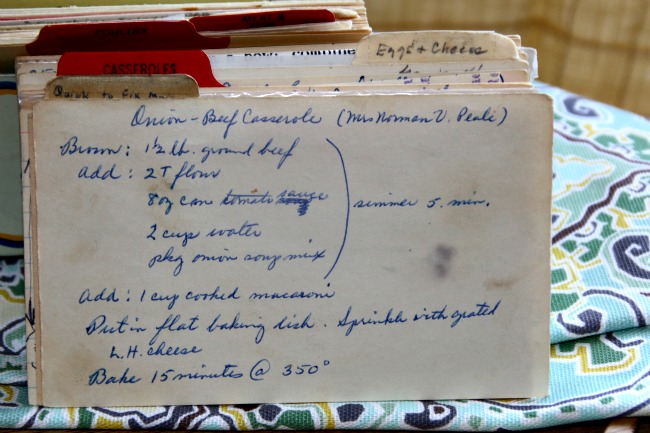 POULTRY
MEALS
Eggs & Cheese
CASSEROLES
Quick to Fix
Onion - Beef Casserole (Mrs Norman V. Peale)
Brown: 1½ lb. ground beef
add: 2 T flour
8 oz can tomato sauce
2 cups water
pkg onion soup mix
simmer 5 min.
add: 1 cup cooked macaroni
Put in flat baking dish. Sprinkle with grated
L.H. cheese
Bake 15 minutes @ 350°